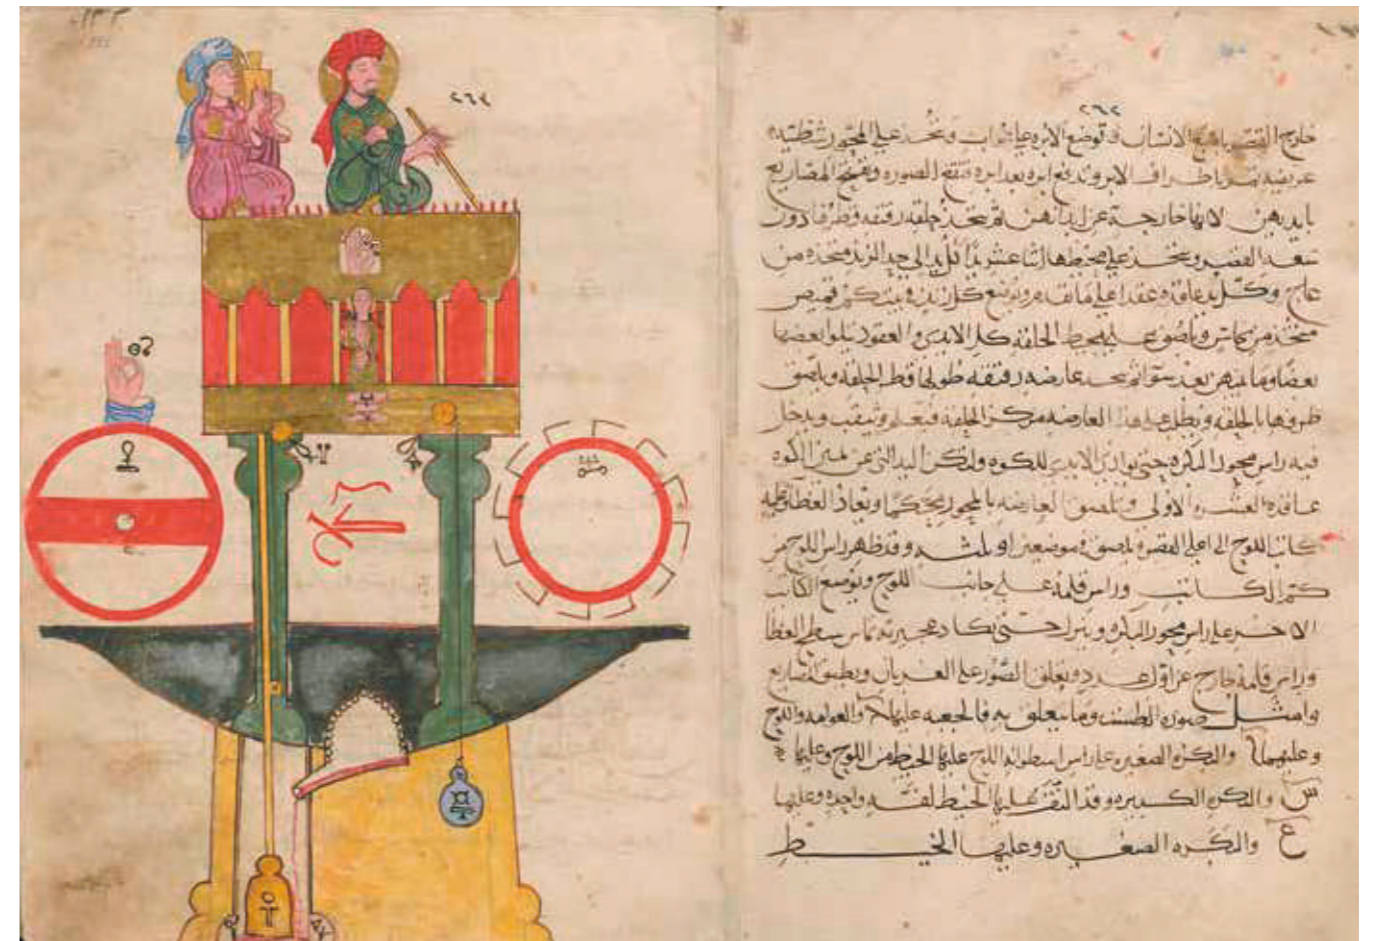 ٢٦٢
خارج القصر باصبع الانسان وتوضع الابره على الباب ويتخذ على المحور شظية
عريضه تمر باطراف الابر وتدفع ابره بعد ابره فتقع الصوره وتفتح المصاريع
بايديهن لانها خارجة عن ابدانهن ثم يتخذ حلقه رقيقه وقطرها دون
سعة القصر ويتخذ على محيطها اثنا عشر يدا كل يد الى حد الزند متخذه من
عاج وكل يد عاقده عقدا على ما تقدم ويوضع كل زند في بيت كم قميص
متخذ من نحاس ويلصق على محيط الحلقه كل الايدي والعقود يتلوا بعضها
بعضا وما بينهن بعد سوآ ثم يتخذ عارضه رقيقه طولها قطر الحلقه ويلصق
طرفاها بالحلقه ويطلب على هذا العارضه مركز الحلقه فيعلم ويثقب ويدخل
فيه راس محور البكره حتى يوازي الايدي للكوه ولتكن اليد التي عن يمين الكوه
عاقده العشره الاولى وتلصق العارضه بالمحور محكما ويعاد الغطا وعليه
كاتب اللوح الى اعلى القصر ويلصق في موضعين او ثلثه وقد ظهر راس اللوح من
كم الكاتب وراس قلمه على جانب اللوح ويوضع الكاتب
الاخر على راس محور البكره وينزل حتى تكاد عجيزته تماس سطح الغطا
وراس قلمه خارج عن اول عدد وتغلق الصور على العربان وتطبق المصاريع
وامثل صورة الطست وما يتعلق به فالجعبه عليها والعوامه واللوح
وعليهما والبكره الصغيره على راس اسطوانه اللوح عليها الخيط من اللوح وعليها
س والبكره الكبيره وقد التف عليها الخيط لفة واحده وعليها
ع والبكره الصغيره وعليها الخيط
٢٦٢